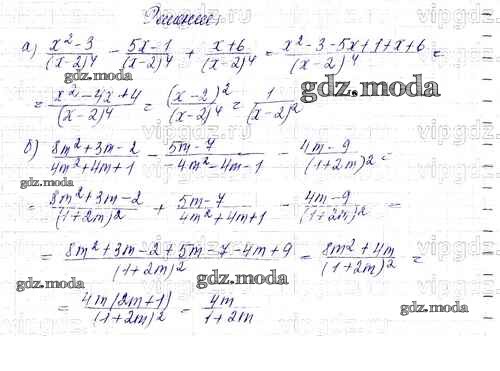 Решение
а) (x²-3)/(x-2)⁴ - (5x-1)/(x-2)⁴ + (x+6)/(x-2)⁴ = (x²-3-5x+1+x+6)/(x-2)⁴ =
= (x²-4x+4)/(x-2)⁴ = (x-2)²/(x-2)⁴ = 1/(x-2)²
б) (8m²+3m-2)/(4m²+4m+1) - (5m-7)/(-4m²-4m-1) - (4m-9)/(1+2m)² =
= (8m²+3m-2)/(1+2m)² + (5m-7)/(4m²+4m+1) - (4m-9)/(1+2m)² =
= (8m²+3m-2+5m-7-4m+9)/(1+2m)² = (8m²+4m)/(1+2m)² =
= 4m(2m+1)/(1+2m)² = 4m/(1+2m)
gdz.moda
gdz.moda
gdz.moda
gdz.moda
gdz.moda
gdz.moda
gdz.moda
gdz.moda